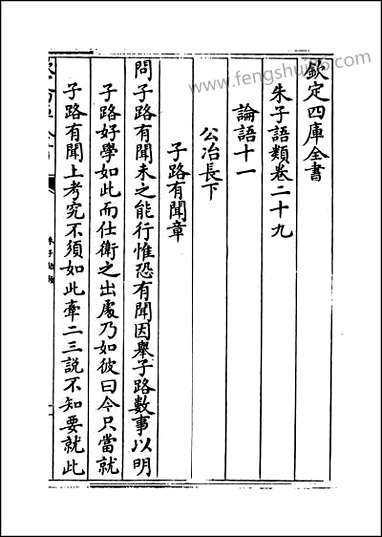 欽定四庫全書
朱子語類卷二十九
論語十一
公冶長下
子路有聞章
問子路有聞未之能行惟恐有聞因舉子路數事以明
子路好學如此而仕衛之出處乃如彼曰今只當就
子路有聞上考究不須如此牽二三說不知要就此
朱子語類
www.fengshui